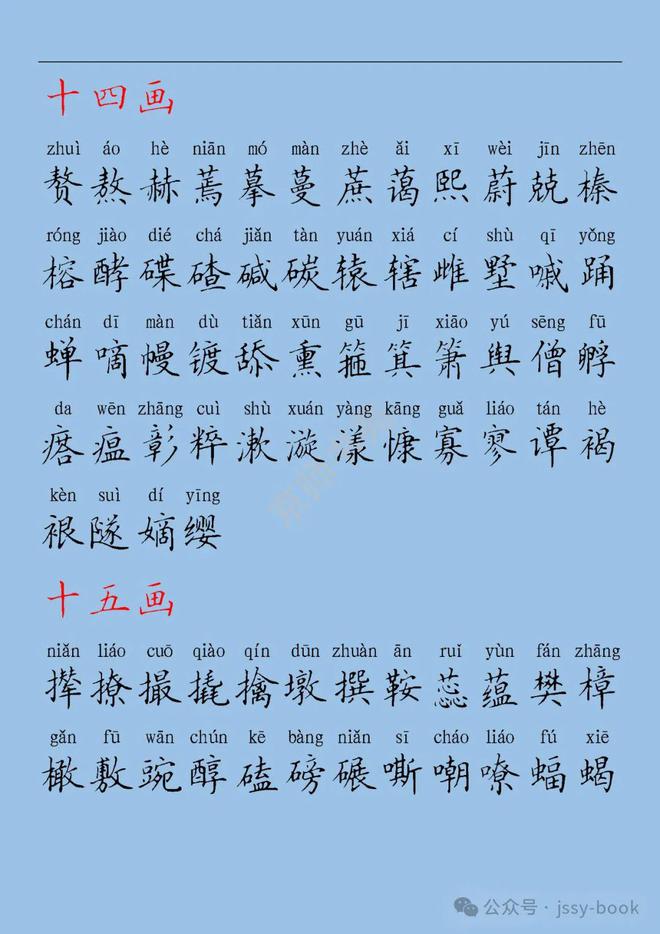 十四画
zhuì áo hè niān mó màn zhè ǎi xī wèi jīn zhēn
赘熬赫蔫摹蔓蔗蔼熙蔚兢榛
róng jiào dié chá jiǎn tàn yuán xiá cí shù qī yǒng
榕酵碟碴碱碳辕辖雌墅嘁踊
chán dī màn dù tiǎn xūn gū jī xiāo yú sēng fū
蝉嘀幔镀舔熏箍箕箫舆僧孵
da wēn zhāng cuì shù xuán yàng kāng guǎ liáo tán hè
瘩瘟彰粹漱漩漾慷寡寥谭褐
kèn suì dí yīng
裉隧嫡缨
十五画
niǎn liáo cuō qiào qín dūn zhuàn ān ruǐ yùn fán zhāng
撵撩撮撬擒墩撰鞍蕊蕴樊樟
gǎn fū wān chún kē bàng niǎn sī cháo liáo fú xiē
橄敷豌醇磕磅碾嘶嘲嘹蝠蝎
公众号 · jssy-book